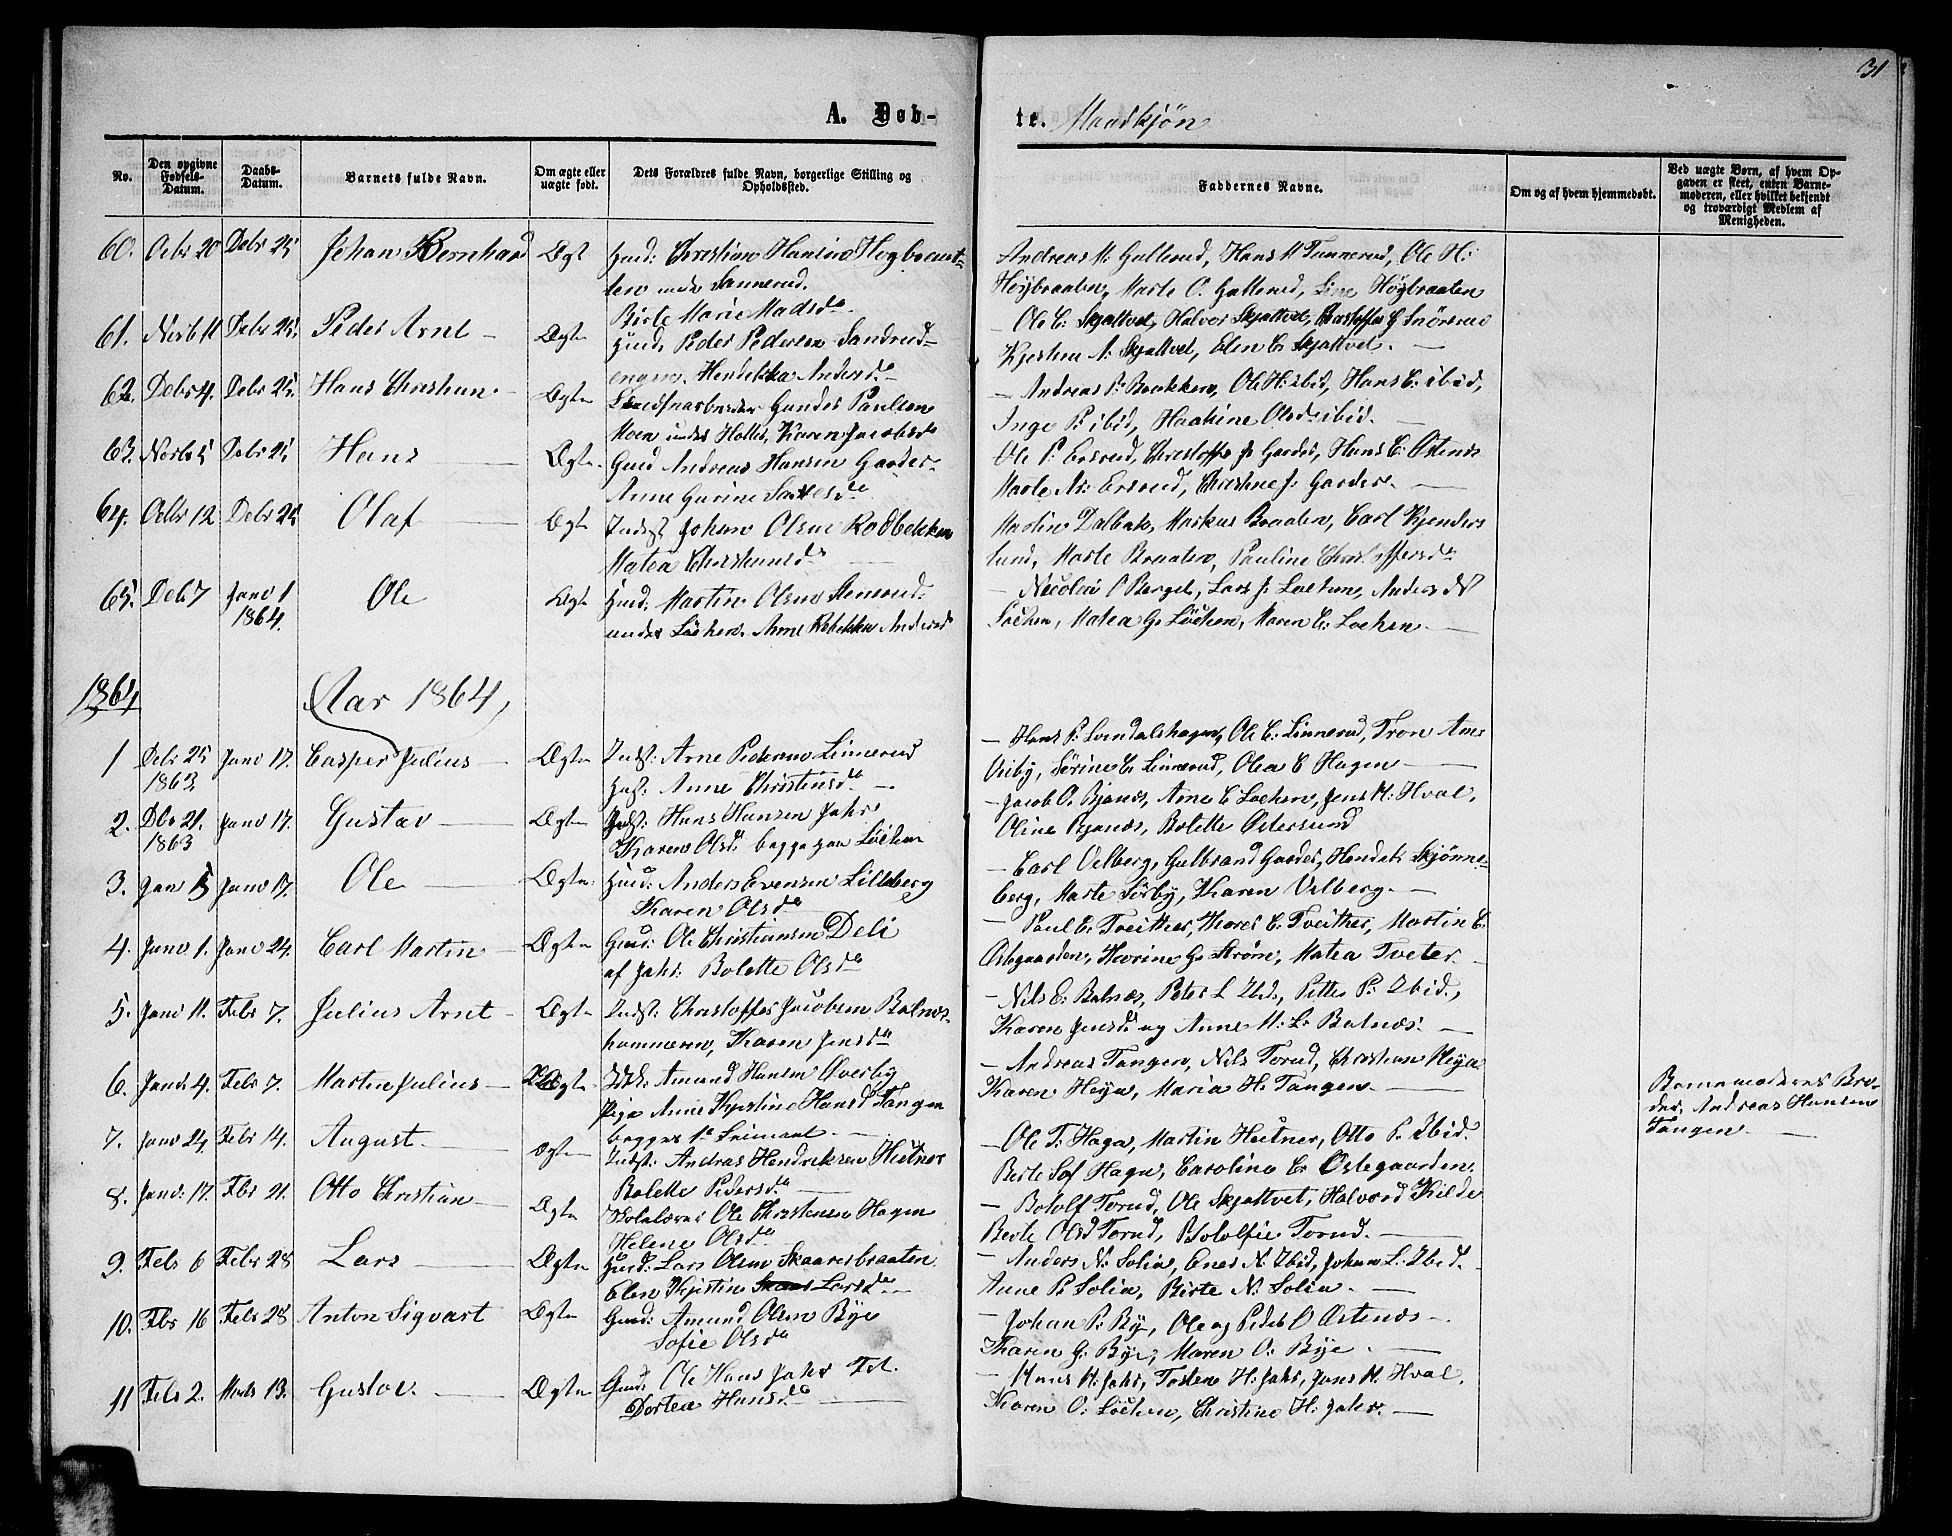 31
A. Døb-
te. Mandkjøn
No.
Den opgivne Fødsels-Datum.
Daabs-Datum.
Barnets fulde Navn.
Om ægte eller uægte født.
Dets Forældres fulde Navn, borgerlige Stilling og Opholdssted.
Faddernes Navne.
Om og af hvem hjemmedøbt.
Ved uægte Børn, af hvem Opgaven er skeet, enten Barnemoderen, eller hvilket bekjendt og troværdigt Medlem af Menigheden.
60. Octbr 20 Debr 25 Johan Bernhard Ægt Huusd: Christian Hansen
under Sannerud.
Birte Marie Madsda
Andreas M: Gullerud, Hans M Tannerud, Ole H:
Høybraaten, Marte O. Gullerud, Line Høybraaten
61. Novb 11 Debr 25. Peder Arne Ægte Huusd Peder Pedersen Sandrud-
engen. Hendikka Andersda
Ole C: Skjattvet, Halvor Skjattvet, Christoffer G Snörerud
Kjestine A: Skjattvet, Elen C: Skjattvet.
62. Debr 4. Debr 25. Hans Christian Ægte Gunder Paulsen
Moen under Holter, Karen Jacobsda
Andreas P: Brakken, Ole H: ibid, Hans C: ibid,
Inge P: ibid, Haakine Olsda ibid.
63. Novb 5 Debr 25 Hans Ægte. Gaard Andreas Hansen Garder
Anne Gurine
Ole P: Ersrud, Christoffer J: Garder, Hans C: Østenes
Marte Ersrud, Christine J: Garder.
64. Octbr 12 Debr 25 Olaf Ægte Indst Johan Olsen Rødbekken
Matea Christiansda
Martin Dalbak, Markus Braaten, Carl Kjenders
lund, Marte Braaten, Pauline Christoffersda
65. Deb 7 Janr 1 1864. Ole Ægte Huusd: Martin Olsen
under Løchen, Anne Rebekka Andersd
Nicolai O Berget, Lars J. Lochen, Anders N
Løchen, Matea G: Løchen, Maren C: Lochen
1864
Aar 1864,
1 Debr 25 1863. Janr 17. Casper Julius Ægte Indst: Arne Pedersen Linnerud
Anne Christinsda
Hans P: Svendalshagen, Ole C: Linnerud, Tron
Sørine C: Linnerud, Olea C Hagen
2. Dbr 21. 1863 Janr 17. Gustav Ægte Indst: Hans Hansen Jahr
Karen Olsd: begge paa Løchen
Jacob O. Bjanes, Arne C Lochen, Jens H: Hval,
Oline Bjanæs, Bolette Østersund
3. Jan 5 Janr 17. Ole Ægte. Huusd: Anders Evensen Lilleberg
Karen Olsda
Carl Velberg, Gulbrand Garder, Hendrik Skjønne-
berg, Marte Sørby, Karen Velberg.
4. Janr 1. Janr 24. Carl Martin Ægte Gaard: Ole Christiansen Deli
af Jahr: Bolette Olsda
Paul C: Tveither, Thores C. Tveither, Martin C.
Østegaarden, Karine G: Strøm, Matea Tveter
5. Janr 11. Febr 7. Julius Arnt Ægte Indst: Christoffer Jacobsen Bolnæs-
hammeren, Karen Jensda
Nils E: Bolnæs, Peter L Ibid, Petter P: Ibid,
Karen Jensda og Anne M: L: Bolnæs.
6. Janr. 4. Febr 7. Martin Julius Uægte. Amund Hansen Øverby
Pige Anne Kjerstine Hansd Tangen
begges 1e Leiermaal.
Andreas Tangen, Nils Torud, Christian Heya
Karen Heya, Maria H: Tangen.
Barnemoderens Bro-
der, Andreas Hansen
Tangen
7. Janr 24. Febr 14. August Ægte Indst: Andreas Hendriksen Heitner
Bolette Pedersda
Ole T: Haga, Martin Heitner, Otto P. Ibid.
Berte Sof Haga, Caroline C: Østegaarden
8. Janr. 17. Fbr 21. Otto Christian Ægte Skolelærer Ole Christensen Hagen
Helene Olsda
Botolf Torud, Ole Skjattvet, Halvord Kilde
Berte Olsd Torud, Botolfie Torud.
9. Febr 6 Febr 28 Lars Ægte Huusd: Lars Olsen Skaaresbraaten
Elen Kjestine Larsda
Anders N: Solie, Enes N: Ibid, Johan L: Ibid.
Anne P: Solie, Birte N: Solie.
10. Fbr 16 Febr 28 Anton Sigvart Ægte Gaard: Amund Olsen Bye
Sofie Olsda
Johan P: By, Ole og Peder O Østenes
Karen G: Bye, Maren O: Bye.
11 Febr 2. Marts 13. Gustav. Ægte Gaard Ole Hans Jahr
Dortea Hansda
Hans H: Jahr, Tosten H: Jahr, Jens H. Hval,
Karen O: Løchen, Christine H: Jahr.